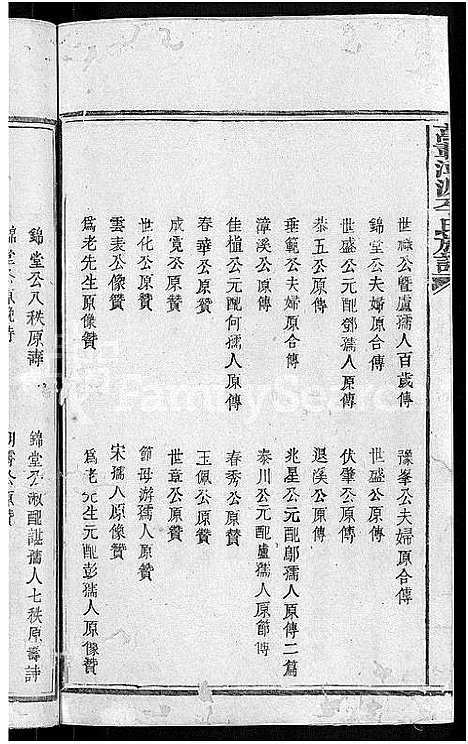 世祿公暨盧孺人百歲傳
豫峯公夫婦原合傳
錦堂公夫婦原合傳
世盛公原傳
世盛公元配鄧孺人原傳
伏肇公原傳
恭五公原傳
退溪公原傳
垂範公夫婦原合傳
兆星公元配鄔孺人原傳二篇
漳溪公原傳
泰川公元配盧孺人原節傳
佳植公元配何孺人原傳
春秀公原贊
春華公原贊
玉佩公原贊
成寬公原贊
世章公原贊
世化公原像贊
節母游孺人原贊
雲表公像贊
宋孺人原像贊
為老先生原像贊
為老先生元配彭孺人原像贊
錦堂公八秩原壽
錦堂公淑配諶孺人七秩原壽詩